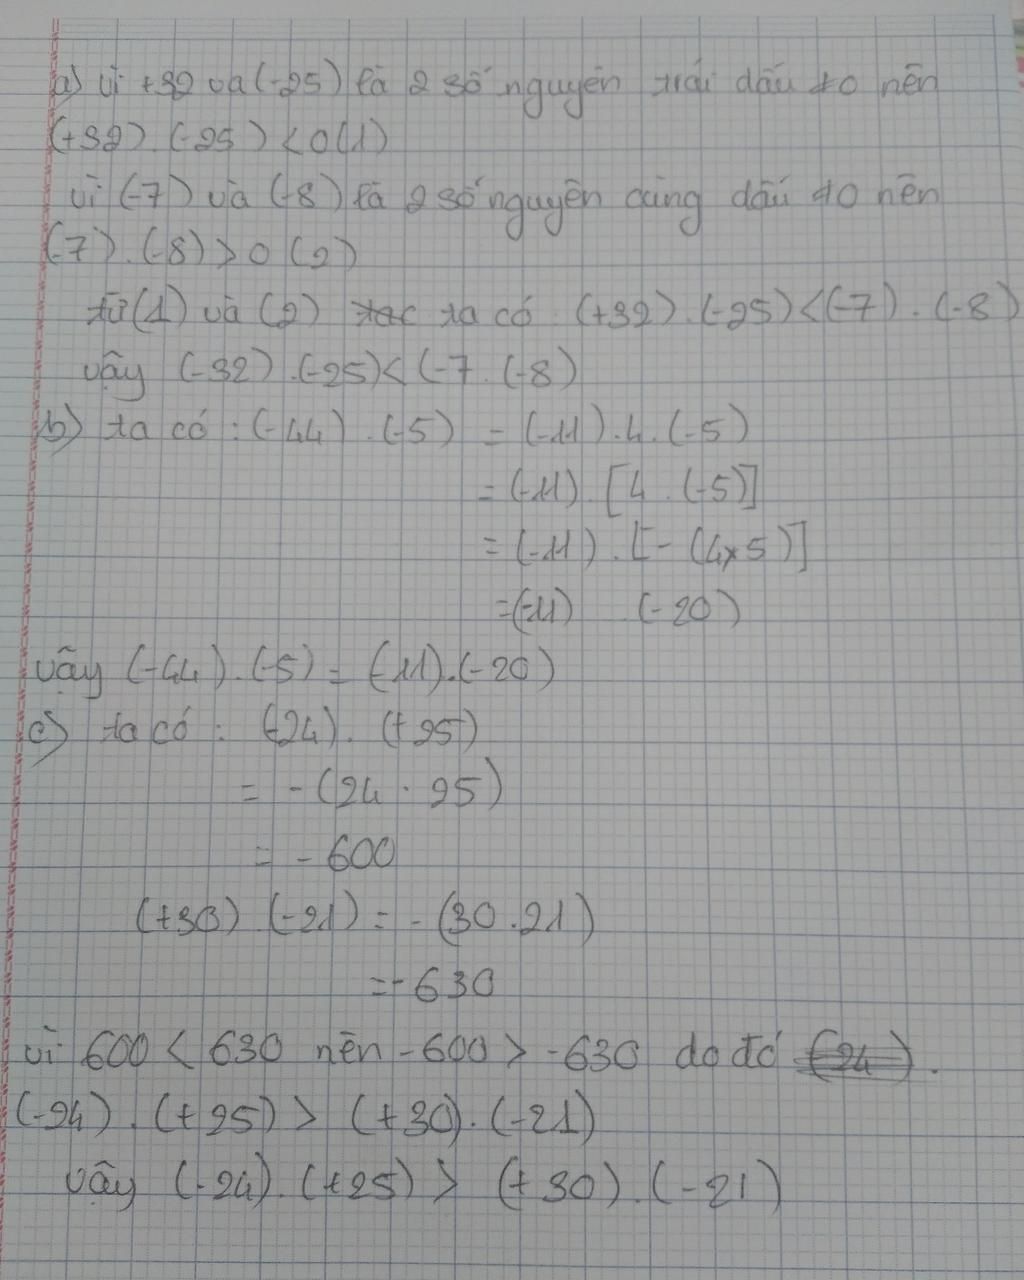 a) Vì +32 và (-25) là 2 số nguyên trái dấu +0 nên
(+32).(-25) < 0 (1)
Vì (-7) và (-8) là 2 số nguyên cùng dấu +0 nên
(-7).(-8) > 0 (2)
từ (1) và (2) ta có (+32).(-25) < (-7).(-8)
vậy (-32).(-25) < (-7.(-8)
b) ta có : (-44).(-5) = (-11).4.(-5)
= (-11).[4.(-5)]
= (-11).[-(4x5)]
= (-11) (-20)
vậy (-44).(-5) = (-11).(-20)
c) ta có : (-24).(+25)
= -(24.25)
= -600
(+30) (-21) = -(30.21)
= -630
vì 600 < 630 nên -600 > -630 do đó (24).
(-24).(+25) > (+30).(-21)
vậy (-24).(+25) > (+30).(-21)